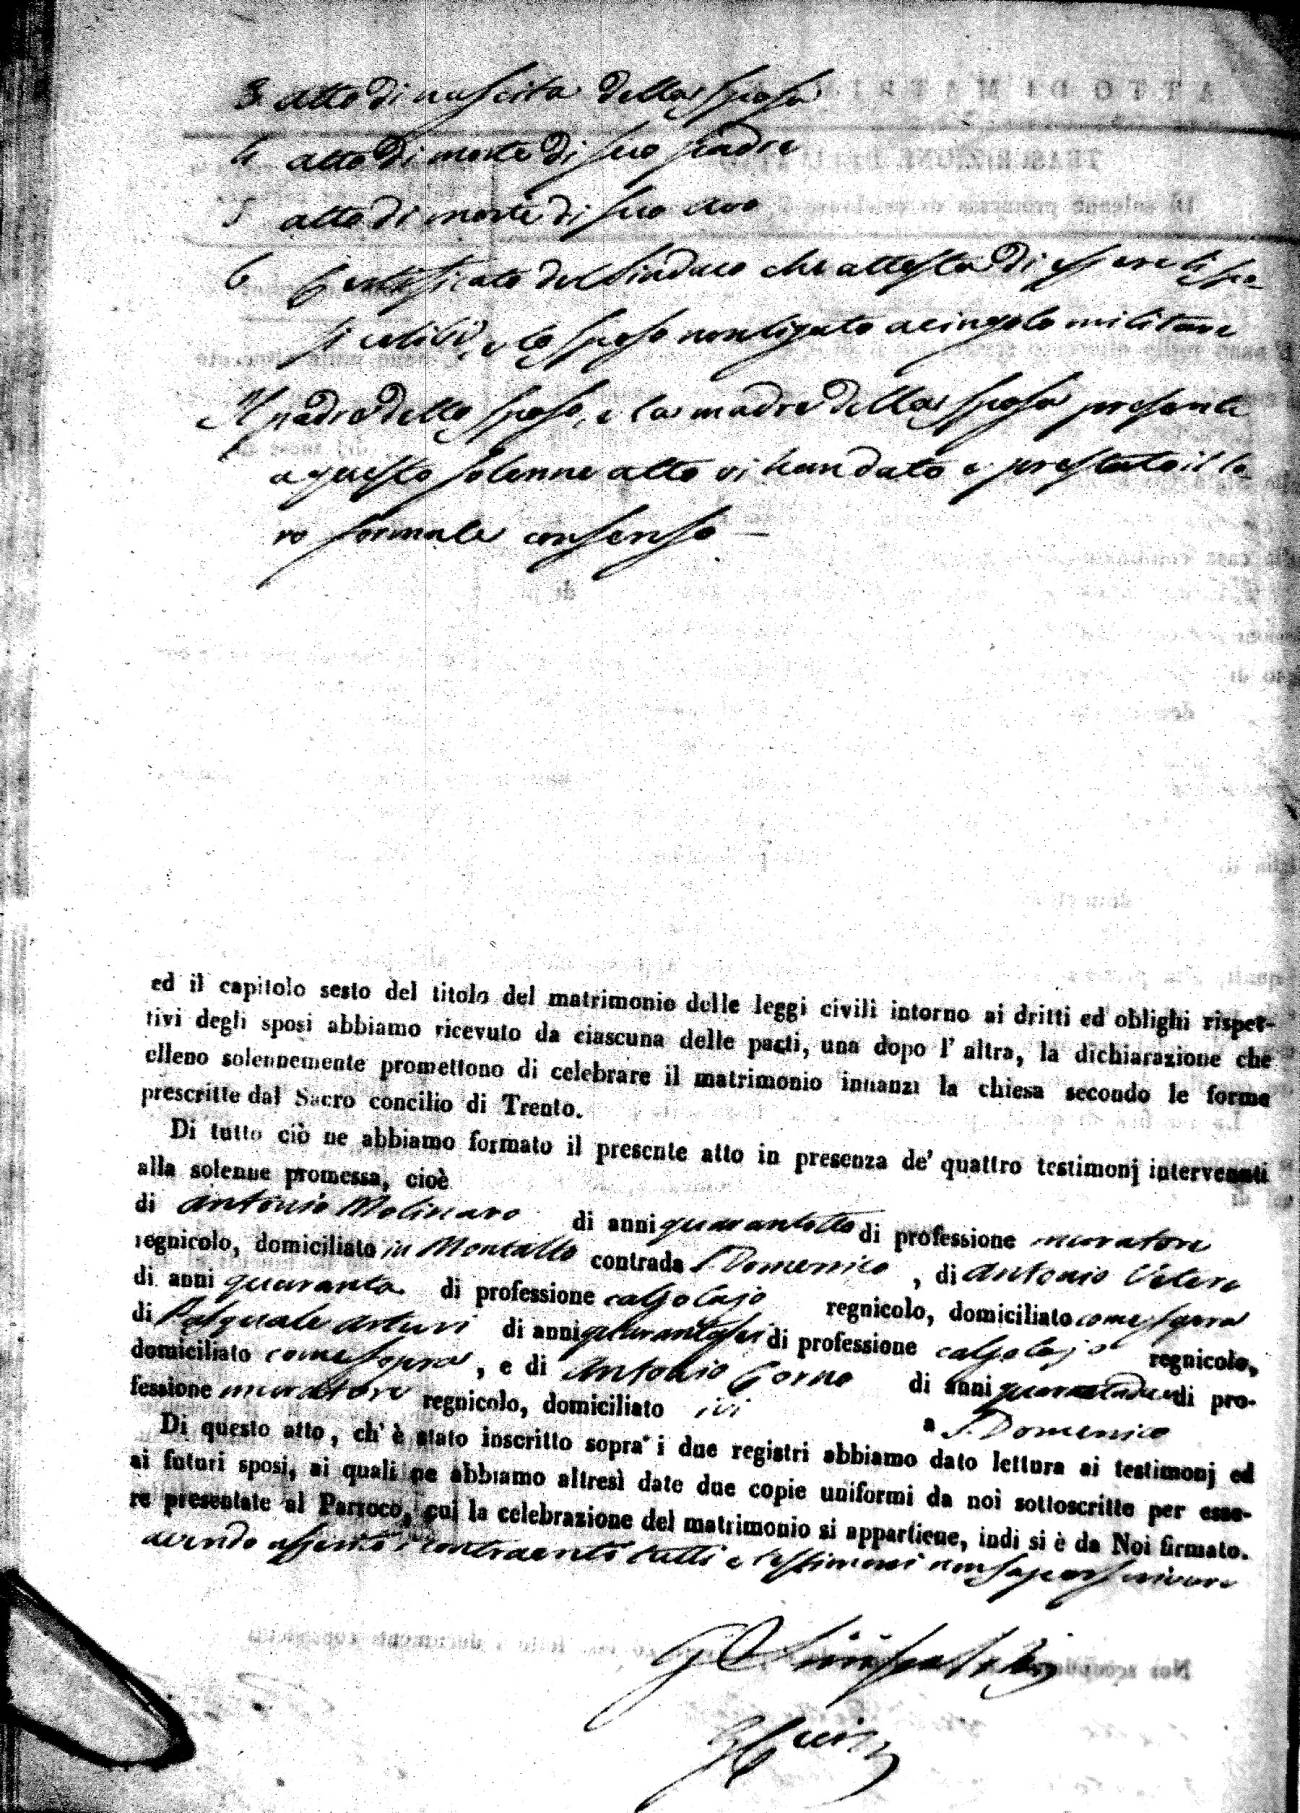 3 atto di nascita della sposa
4 atto di morte di suo padre
5 atto di morte di suo avo
6 Certificato del Sindaco che attesta di essere li spo-
si celibi, e lo sposo non ligato a cingolo militare
Il padre dello sposo, e la madre della sposa presenti
a questo solenne atto vi han dato e prestato il lo-
ro formale consenso —
ed il capitolo sesto del titolo del matrimonio delle leggi civili intorno ai dritti ed oblighi rispet-
tivi degli sposi abbiamo ricevuto da ciascuna delle parti, una dopo l' altra, la dichiarazione che
elleno solennemente promettono di celebrare il matrimonio innanzi la chiesa secondo le forme
prescritte dal Sacro concilio di Trento.
Di tutto ciò ne abbiamo formato il presente atto in presenza de' quattro testimonj intervenuti
alla solenne promessa, cioè
di Antonio Molinaro di anni quarantotto di professione muratore
regnicolo, domiciliato in Montalto contrada S. Domenico , di Antonio Vetere
di anni quaranta di professione calzolajo regnicolo, domiciliato come sopra
di Pasquale Arturi di anni quarantasei di professione calzolajo regnicolo,
domiciliato come sopra , e di Antonio Gorno di anni di pro-
fessione muratore regnicolo, domiciliato ivi a S. Domenico
Di questo atto, ch' è stato inscritto sopra' i due registri abbiamo dato lettura ai testimonj ed
ai futuri sposi, ai quali ne abbiamo altresì date due copie uniformi da noi sottoscritte per esse-
re presentate al Parroco, cui la celebrazione del matrimonio si appartiene, indi si è da Noi firmato.
avendo asserito i contraenti tutti e testimoni non saper scrivere